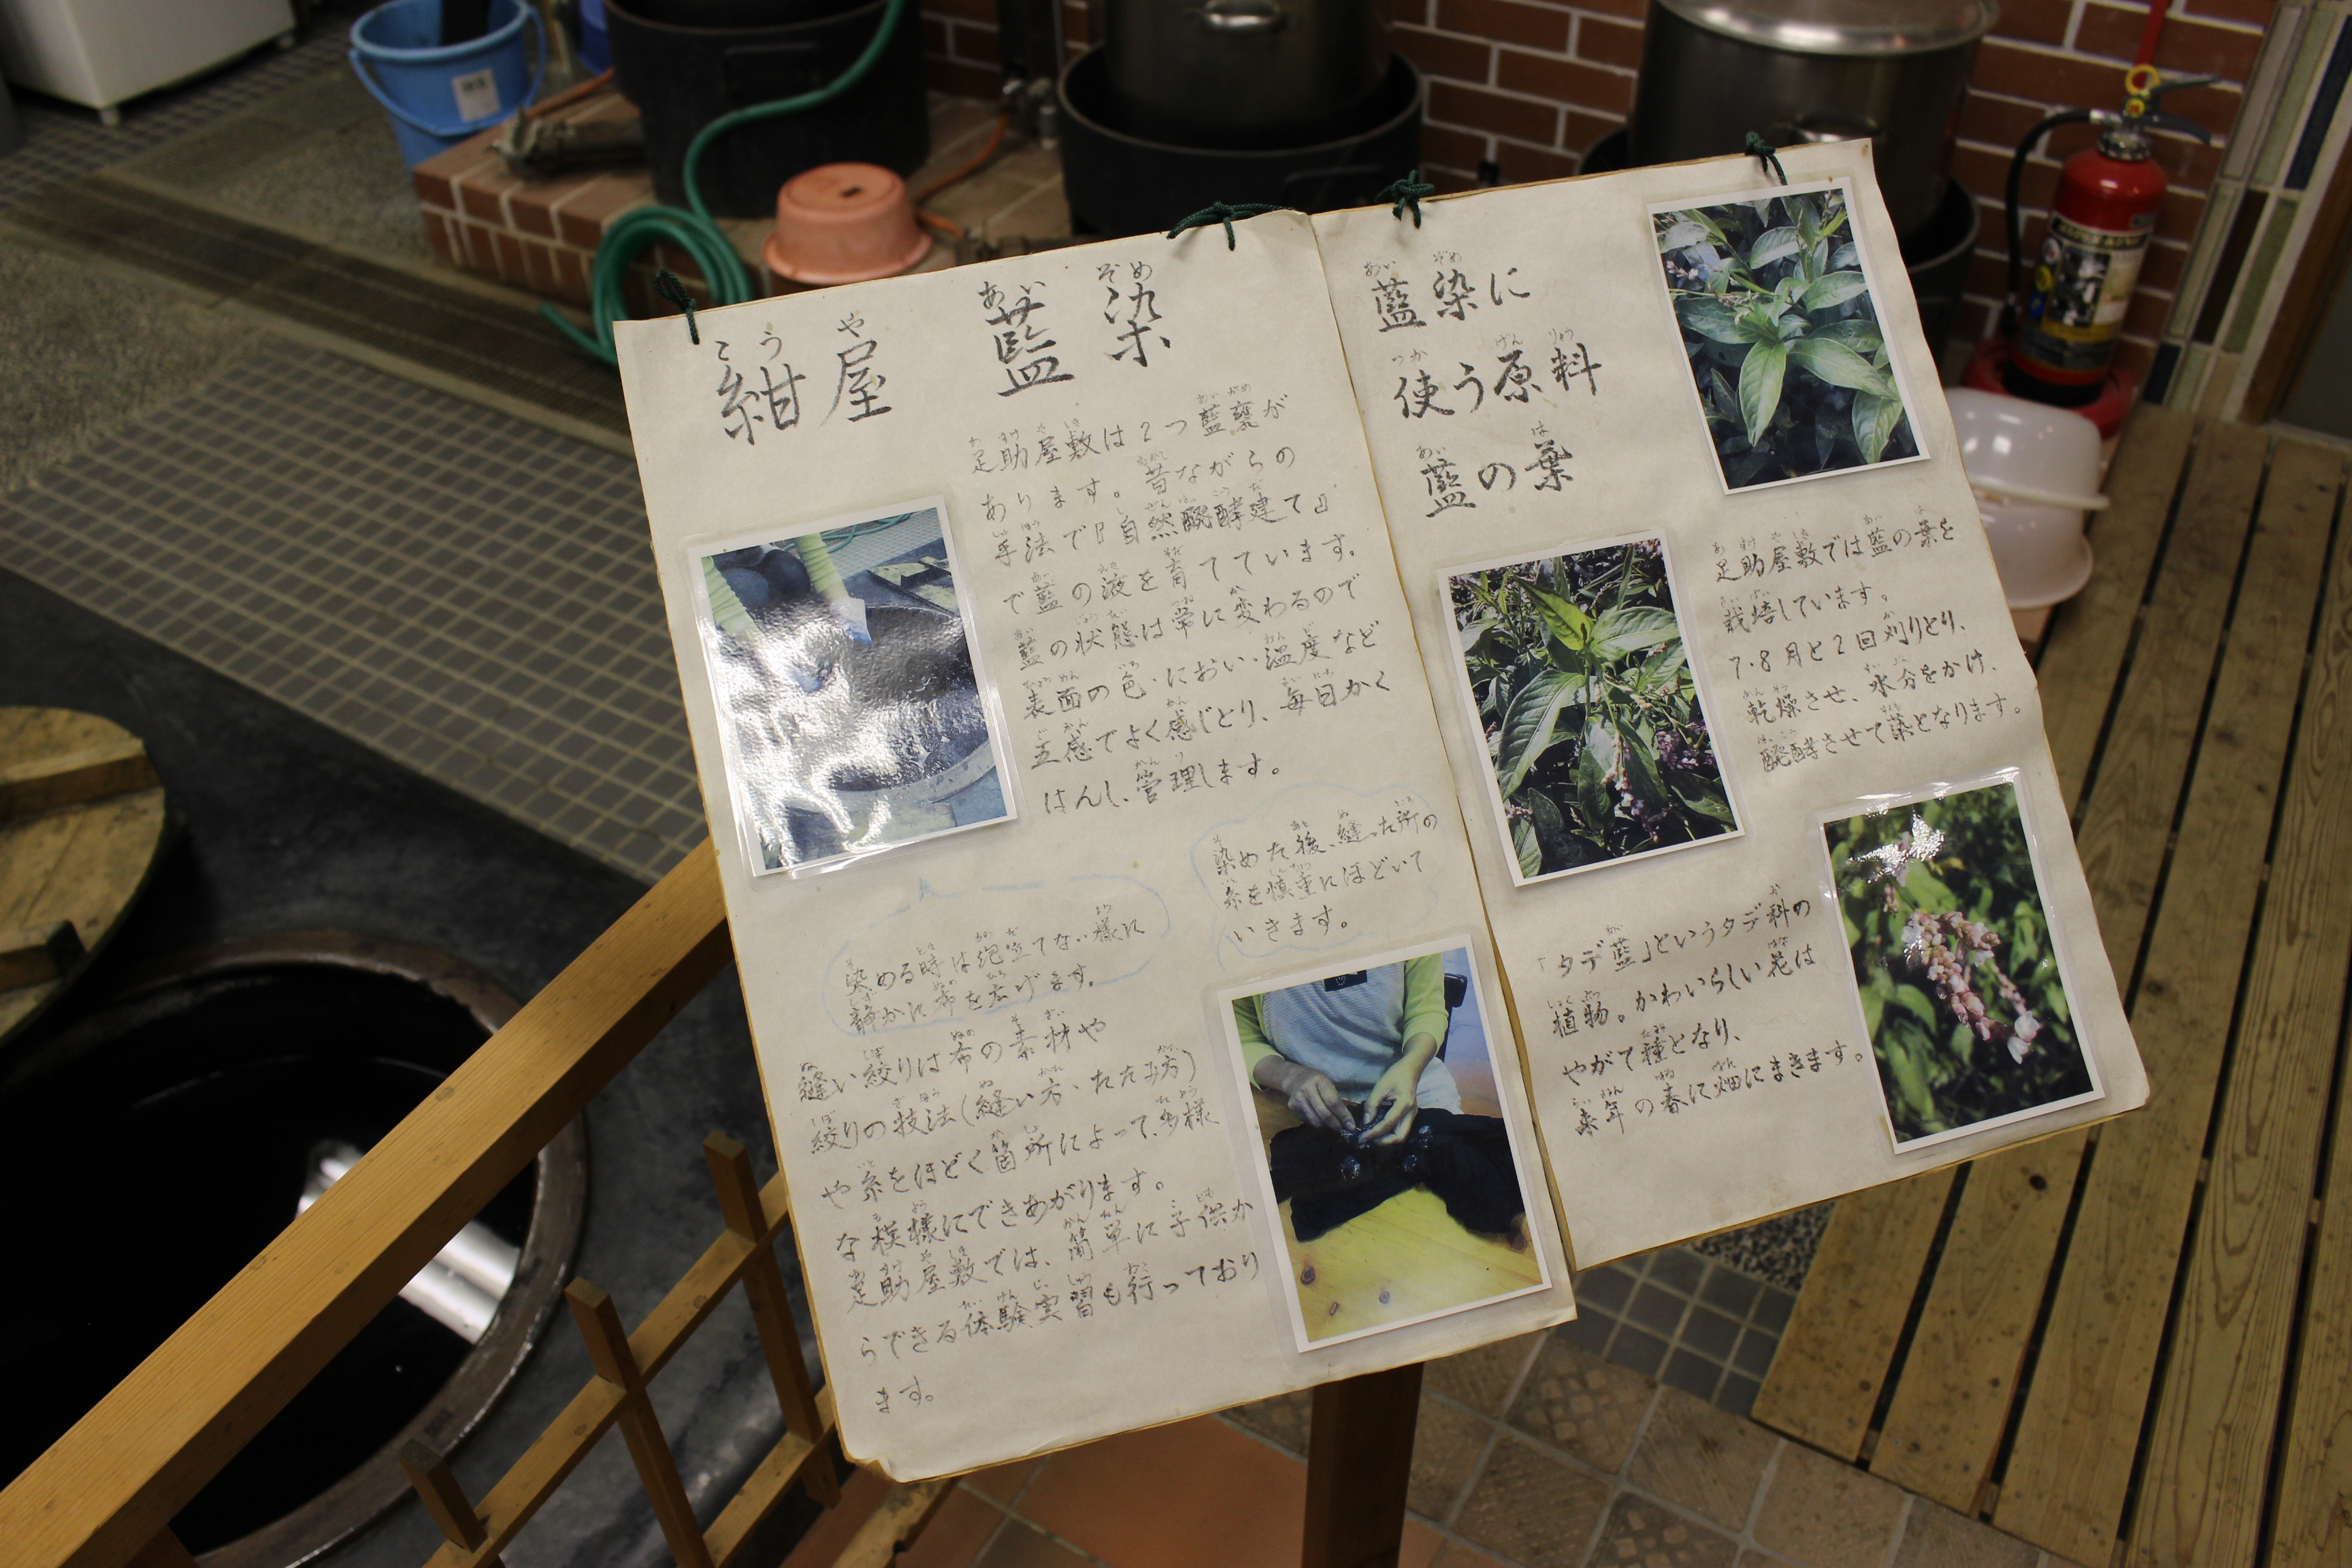 紺屋 藍染
足助屋敷は2つ藍甕が
あります。昔ながらの
手法で『自然醗酵建て』
で藍の液を育てています。
藍の状態は常に変わるので
表面の色・におい・温度など
五感でよく感じとり、毎日かく
はんし、管理します。
染める時は泡立てない様に
静かに布を広げます。
染めた後、縫った所の
糸を慎重にほどいて
いきます。
縫い絞りは布の素材や
絞りの技法(縫い方・たたみ方)
や糸をほどく箇所によって、多様
な模様にできあがります。
足助屋敷では、簡単に子供か
らできる体験実習も行っており
ます。
藍染に
使う原料
藍の葉
足助屋敷では藍の葉を
栽培しています。
7・8月と2回刈りとり、
乾燥させ、水分をかけ、
醗酵させて蒅となります。
「タデ藍」というタデ科の
植物。かわいらしい花は
やがて種となり、
来年の春に畑にまきます。